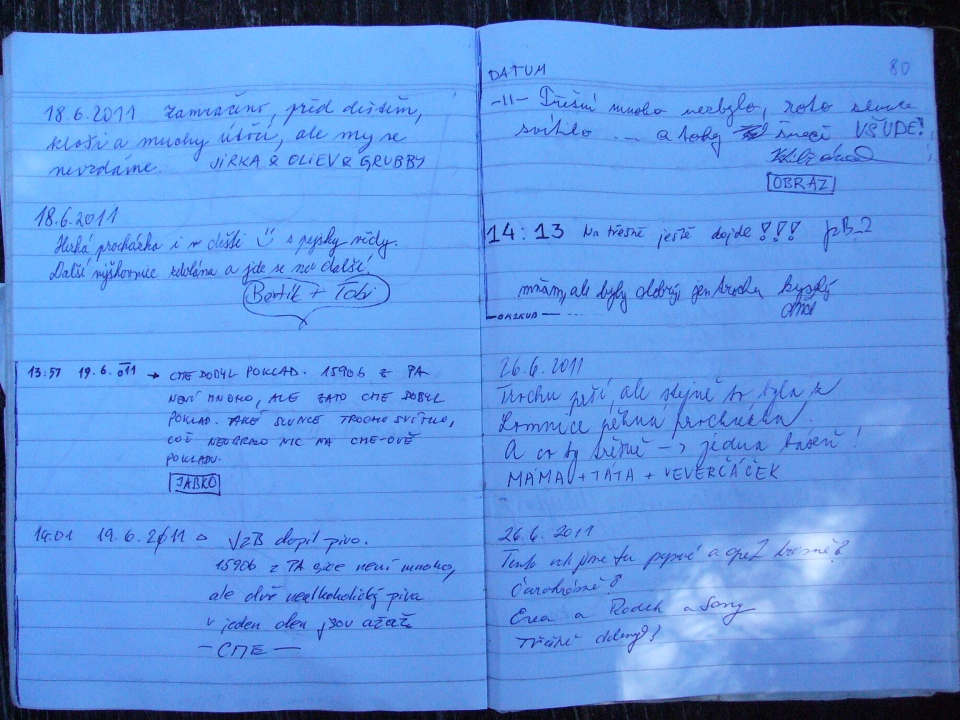 18.6.2011 Zamračeno, před deštěm,
kloši a mouchy útočí, ale my se
nevzdáme. JIRKA & OLIEV & GRUBBY
18.6.2011
Hezká procházka i v dešti s pejsky vždy.
Další výškovnice zdolána a jde se na další!
Bertík + Tobi
13:57 19.6.2011 → CME DOBYL POKLAD. 1590B Z PA
NENÍ MNOHO, ALE ZATO CME DOBYL
POKLAD. TAKÉ SLUNCE TROCHU SVÍTILO,
COŽ NEUBRALO NIC NA CME-OVĚ
POKLADU.
JABKO
14:01 19.6.2011 VzB dopil pivo.
1590b z PA sice není mnoho,
ale dvě nealkoholický piva
v jeden den jsou ažaž.
- CME -
DATUM 80
-11- Třešní mnoho nezbylo, zato slunce
svítilo ... a taky šneci VŠUDE!
OBRAZ
14:13 Na třešně ještě dojde!!!
mňam, ale byly dobrý, jen trochu kyselý
26.6.2011
Trochu prší, ale stejně to byla z
Lomnice pěkná procházka.
A co ty třešně -> jedna báseň!
MÁMA + TÁTA + VEVERČÁČEK
26.6.2011
Tento rok jsme tu poprvé a opět
a Radek a Sany